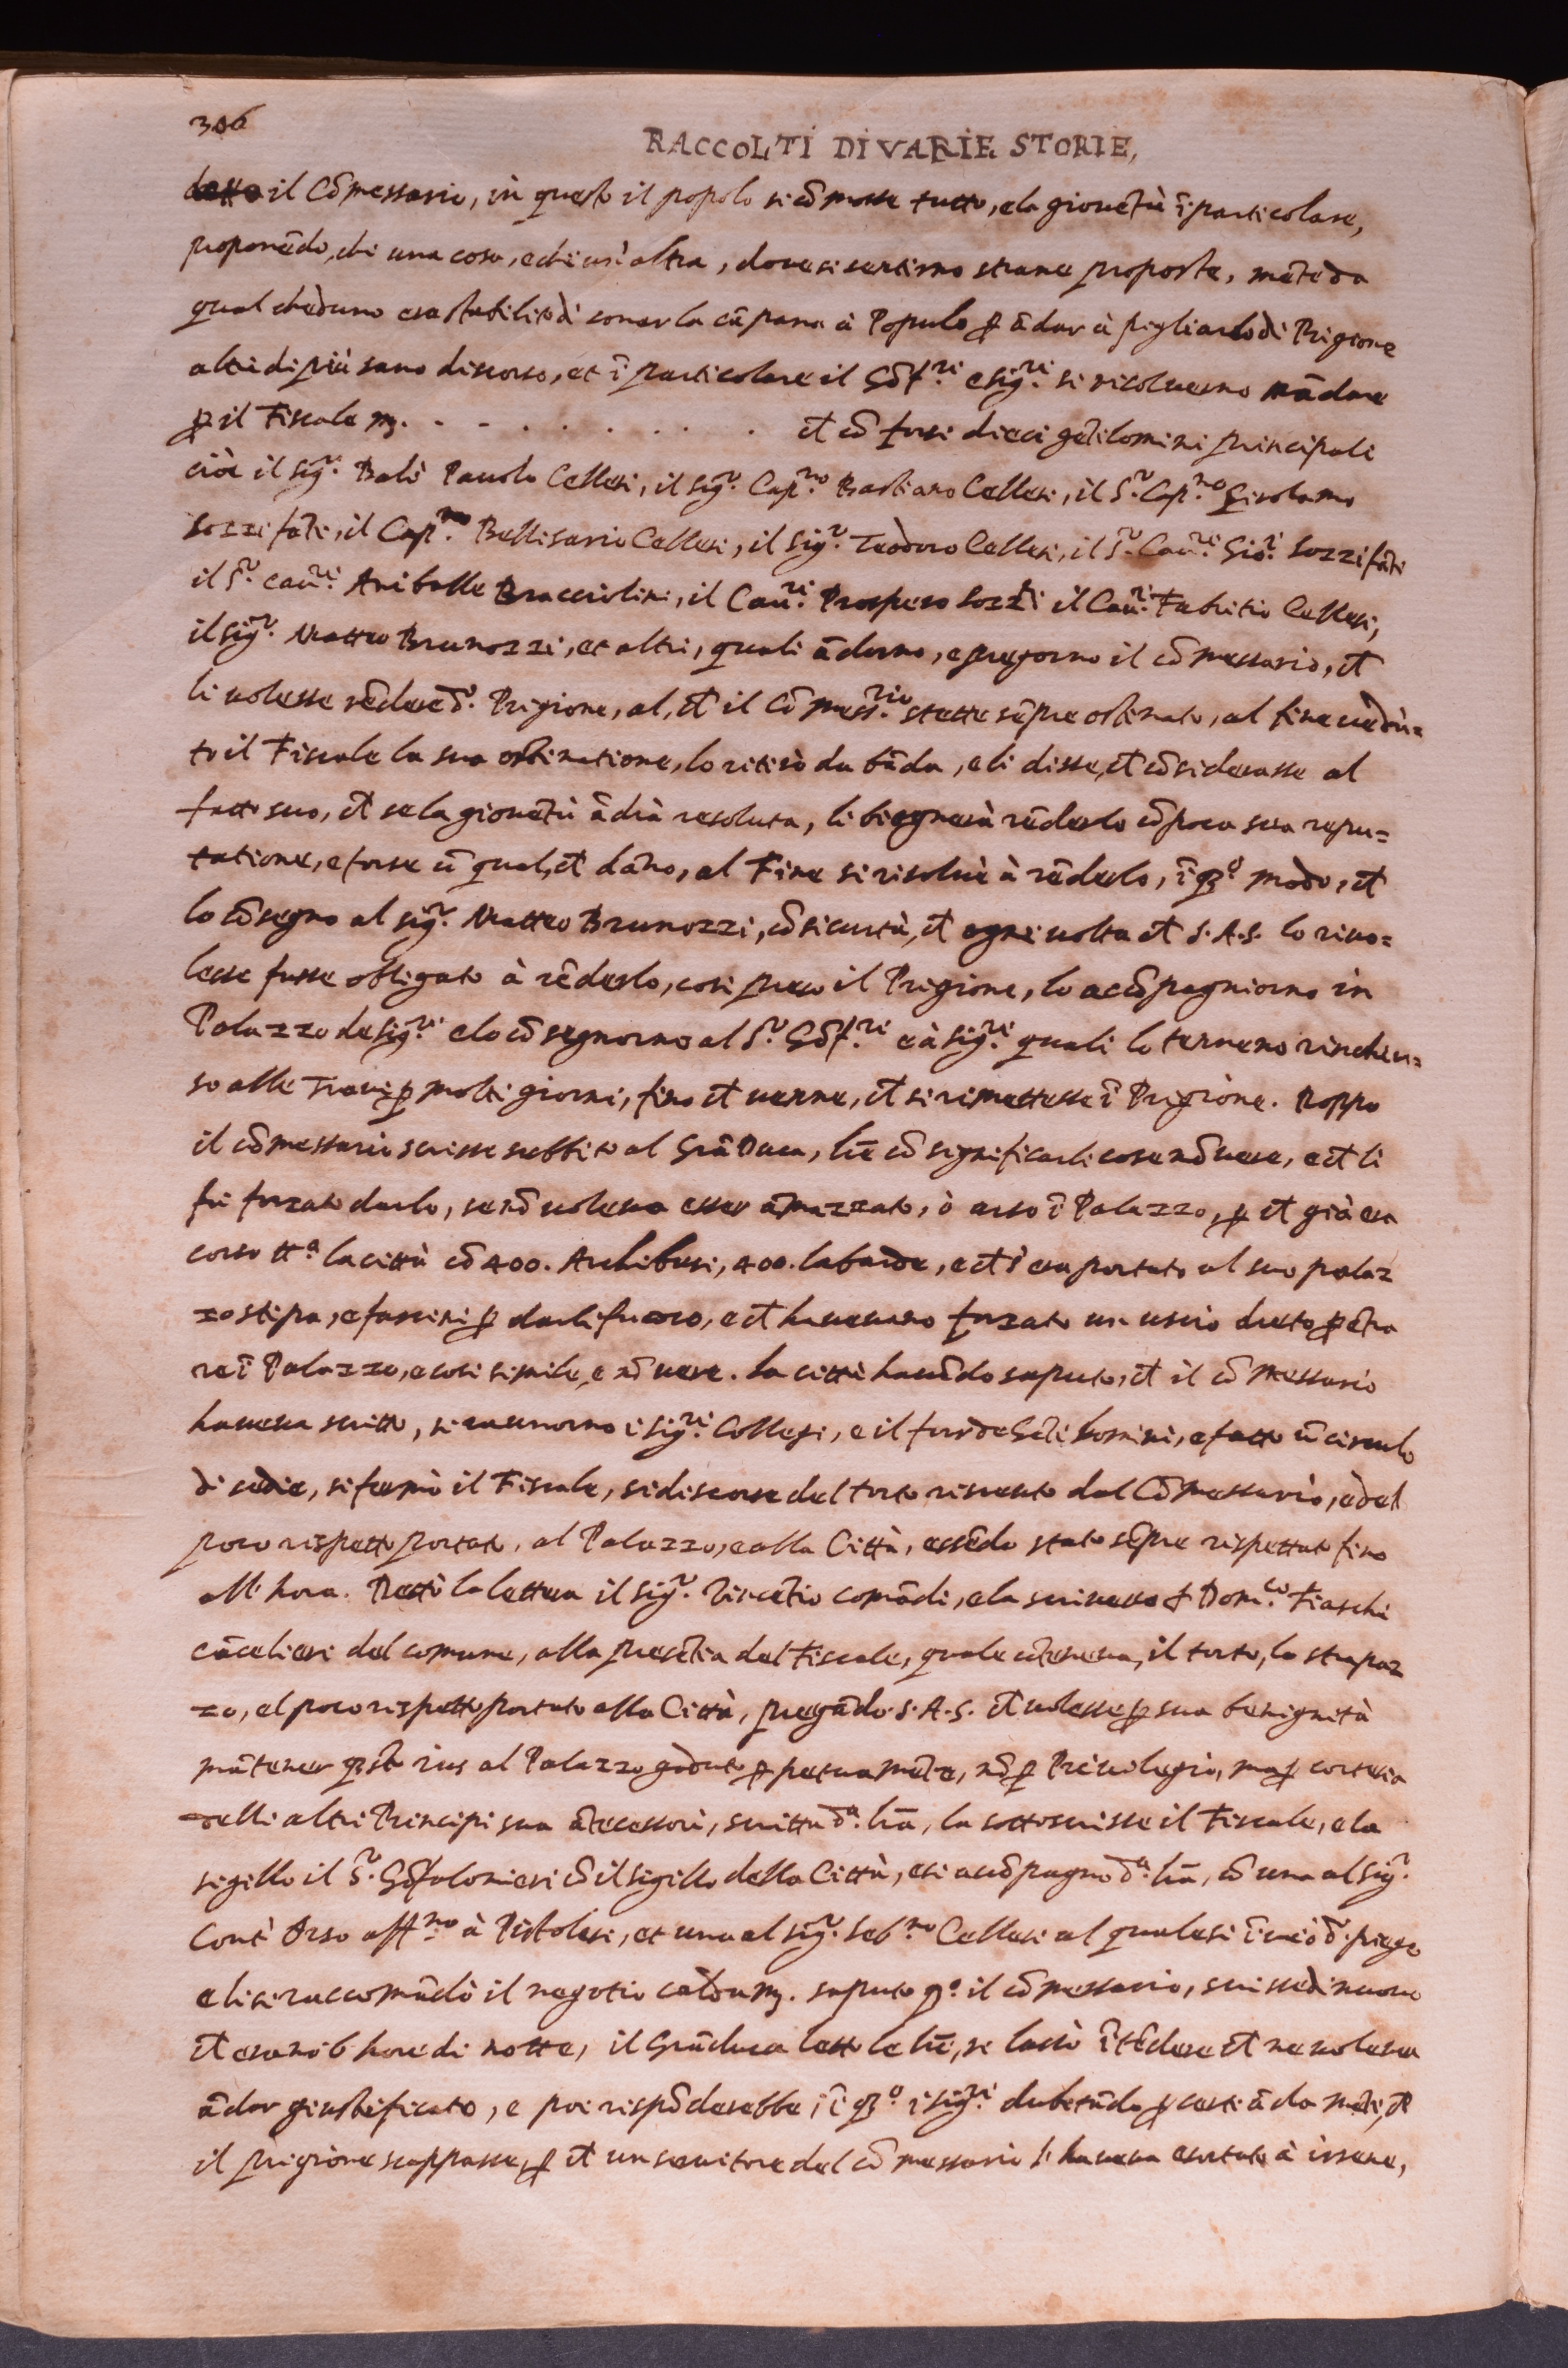 306
RACCOLTI DI VARIE STORIE,
il Cō messario, in questo il popolo si cō mosse tutto, e la gionētù ī particolare,
proponēdo, chi una cosa, e chi un'altra, dove si sentirno strane proposte, mēte da
qual cheduno era stabilito di sonar la cāpana à Popolo ꝑ ādar à pigliarlo di Prigione
altri di più sano discorso, et ī particolare il Gōf.ʳⁱ e sig.ʳⁱ si risoluerno mādare
ꝑ il Fiscale m. . . . . . . . . . . et cō forsi dieci gētilomini principali
cioè il sig.ʳ Balì Pauolo Cellesi, il sig.ʳ Cap.ⁿᵒ Bastiano Cellesi, il S.ʳ Cap.ⁿᵒ Girolamo
Sozzifāti, il Cap.ⁿᵒ Bellisario Cellesi, il sig.ʳ Teodoro Cellesi, il S.ʳ Cau.ʳⁱ Gio.ⁱ Sozzifāti
il S.ʳ cau.ʳⁱ Anibolle Bracciolini, il Cau.ʳⁱ Prospero Sozzi il Cau.ʳⁱ Fabritio Cellesi,
il sig.ʳ Matteo Brunozzi, et altri, quali ādorno, e pregorno il cō messario, ct̄
li uolesse rēdere d.ᵒ Prigione, al, ct̄ il Cō mess.ʳⁱᵒ stette sēpre ostinato, al fine uedu=
to il Fiscale la sua ostinatione, lo ritirò da bāda, e li disse, ct̄ cōsiderasse al
fatto suo, ct̄ se la gionētù ādrà resoluta, li bisognerà rēderlo cō poca sua repu=
tatione, e forse cō qual, ct̄ dāno, al Fine si risoluè à rēderlo, ī qsᵒ modo, ct̄
lo cōsegno al sig.ʳ Matteo Brunozzi, cō sicurtà, ct̄ ogni uolta ct̄ S.A.S. lo riuo=
lesse fusse obligato à rēderlo, così preso il Prigione, lo acōpagniorno in
Palazzo de sig.ʳⁱ e lo cōsegnorno al S.ʳ Gōf.ʳⁱ e à sig.ʳⁱ quali lo tennero rinchiu=
so alle Traui ꝑ molti giorni, fino ct̄ uenne, ct̄ si rimettesse ī Prigione. Doppo
il cōmessario scrisse subbito al Grā Duca, lrē cō significarli cose nō uere, e ct̄ li
fu forzato darlo, se nō uoleua esser āmazzato, ò arso ī Palazzo, ꝑ ct̄ già era
corso tt.ᵃ la città cō 400. Archibusi, 400. labarde, e ct̄ s'era portato al suo palaz
zo stipa, e fascini ꝑ darli fuoco, e ct̄ haueuano forzato un uscio dreto ꝑ ētra
re ī Palazzo, e cosi simile, e nō uere. La città hauēdo saputo, ct̄ il cō messario
haueua scritto, si raunorno i sig.ʳⁱ Collegi, e il fior de Gētil homini, e fatto ū circulo
di sedie, si fermò il Fiscale, si discorse del torto riceuuto dal Cōmessario, e del
poco rispetto portato, al Palazzo, e alla Città, essēdo stato sēpre rispettato fino
all' hora. Dettò la lettera il sig.ʳ Vincētio comādi, e la scriueua f Dom.ᶜᵒ Fiaschi
cācelieri del comune, alla presētia del Fiscale, quale cōteneua, il torto, lo strapaz
zo, el poco rispetto portato alla Città, pregādo S.A.S. ct̄ uolesse ꝑ sua benignità
mātener qsto ius al Palazzo goduto ꝑpetuamēte, nō ꝑ Priuilegio, ma ꝑ cortesia
delli altri Principi sua ātecessori, scritta d.ᵃ lrā, la sottoscrisse il Fiscale, e la
sigillo il S.ʳ Gōfalonieri cō il sigillo della Città, e si acōpagnò d.ᵃ lrā, cō una al sig.ʳ
Cont' Orso aff.ⁿᵒ à Pistolesi, et una al sig.ʳ Seb.ⁿᵒ Cellesi al quale si īuiò d.ᵒ piego
e li si raccomādò il negotio caldam. saputo q.ᵒ il cōmessario, scrisse di nuouo
ct̄ erano 6 hore di notte, il Grāduca letto le lrē, si lassò ītēdere ct̄ ne uoleua
ādar giustificato, e poi rispōderebbe, ī qsᵒ i sig.ʳⁱ dubitādo ꝑ certi ādamēti, ct̄
il prigione scappasse, ꝑ ct̄ un seruitore del cō messario l' haueua esortato à irsene,